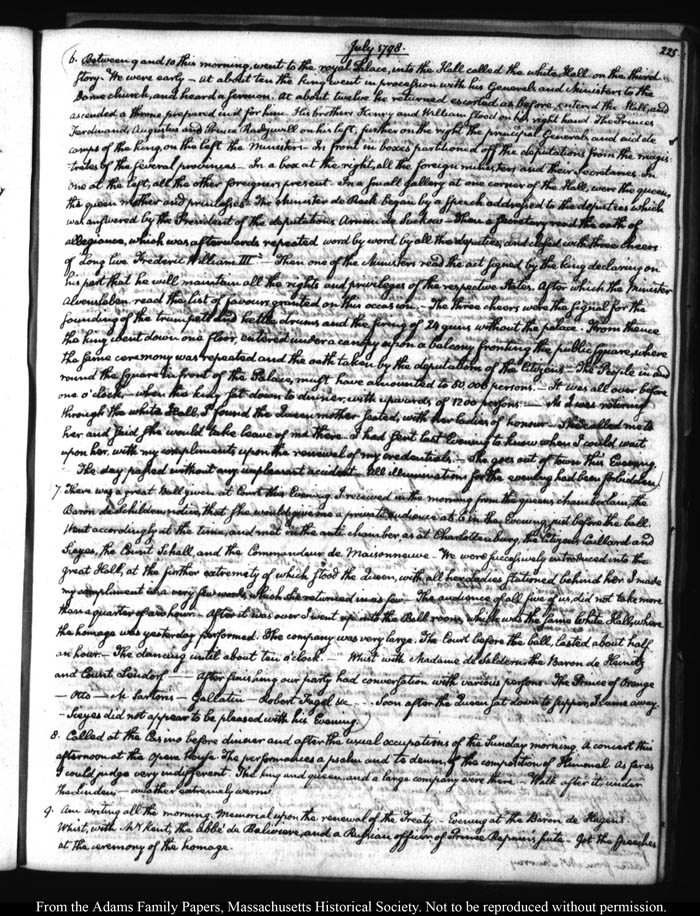 July 1798.
225.
6. Between 9 and 10 this morning, went to the royal Palace, into the Hall called the white Hall on the third
story. We were early — at about ten the king went in procession with his Generals and Ministers to the
Dome church, and heard a sermon. At about twelve he returned escorted as before, entered the Hall, and
ascended a throne prepared in it for him. His brothers Henry and William stood on his right hand. The Princes
Ferdinand, Augustus and Prince Radzivill on his left, further on the right the principal Generals and aid de
camps of the king, on the left the Ministers. In front in boxes partitioned off the deputations from the magis-
trates of the several provinces. In a box at the right, all the foreign ministers and their Secretaries. In
one at the left, all the other foreigners present. In a small gallery at one corner of the Hall, were the queen,
the queen mother and princesses. The Minister de Reck began by a speech addressed to the deputies which
was answered by the President of the deputations Arnim de Then a Secretary read the oath of
allegiance, which was afterwards repeated word by word by all the deputies, and closed with three cheers
of Long live Frederic William IIId. Then one of the Ministers read the act signed by the king declaring on
his part that he will maintain all the rights and privileges of the respective States. After which the Minister
Alvensleben read the list of favours granted on this occasion. — The three cheers were the signal for the
sounding of the trumpets and kettle drums and the firing of 24 guns without the palace. From thence
the king went down one floor, entered under a canopy upon a balcony fronting the public square, where
the same ceremony was repeated and the oath taken by the deputations of the Citizens — The People in and
round the square in front of the Palace, must have amounted to 50,000 persons. — It was all over before
one o'clock when the king sat down to dinner, with upwards of 1200 persons. — As I was returning
through the white Hall, I found the Queen mother seated, with her ladies of honour. She called me to
her and said she would take leave of me there. I had sent last Evening to know when I could wait
upon her, with my compliments upon the renewal of my credentials. — She goes out of town this Evening.
— The day passed without any unpleasant accident. All illuminations for the evening had been forbidden.
7. There was a great Ball given at Court this Evening. I received in the morning from the queens chamberlain, the
Baron de Schilden, notice, that she would give me a private audience at 6 in the Evening, just before the ball.
Went accordingly at the time, and met in the anti chamber, as at Charlottenburg, the Citizens Caillard and
Sieyes, the Count Schall, and the Commandeur de Maisonneuve. We were successively introduced into the
great Hall, at the further extremity of which stood the Queen, with all her ladies stationed behind her. I made
my compliment in a very few words, which she returned in as few. The audience of all five of us, did not take more
than a quarter of an hour. — After it was over I went up into the Ball room, which was the same White Hall, where
the homage was yesterday performed. The company was very large. The Court before the ball, lasted about half
an hour. — The dancing until about ten o'clock. — Whist with Madame de Saldern, the Baron de Heinitz
and Count Lendorf. — After finishing our party had conversation with various persons. The Prince of Orange
— Otto — M. Sartoris — Gallatin — Robert Fagel &c — . Soon after the Queen sat down to supper, I came away.
— Sieyes did not appear to be pleased with his Evening.
8. Called at the Casino before dinner and after the usual occupations of the Sunday morning. A concert this
afternoon at the Opera House. The performances a psalm and te deum, of the composition of Himmel. As far as
I could judge very indifferent. The king and queen, and a large company were there. — Walk after it, under
the lindens — weather extremely warm.
9. Am writing all the morning. Memorial upon the renewal of the Treaty. — Evening at the Baron de Hagen's
Whist, with Mrs Kent, the Abbé de Balivière, and a Russian officer, of Prince Repnin's suite. — Got the speeches
at the ceremony of the homage.
From the Adams Family Papers, Massachusetts Historical Society. Not to be reproduced without permission.